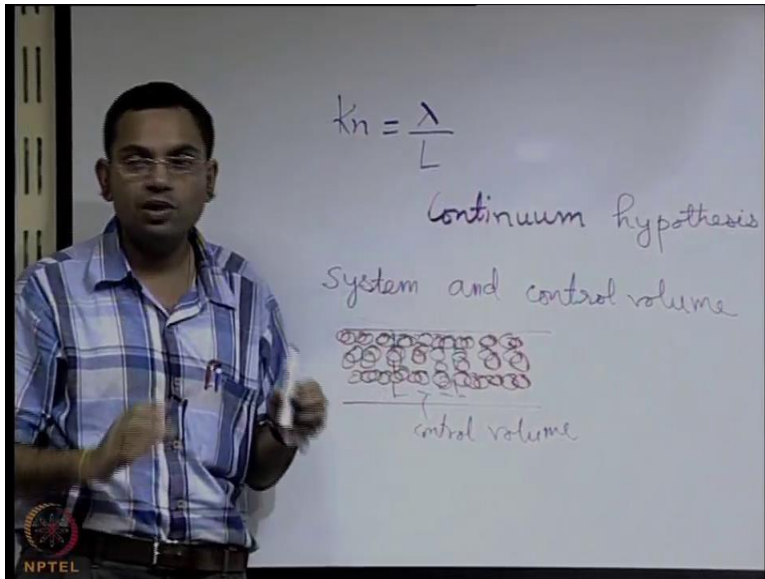 Kn = λ/L
Continuum hypothesis
System and control volume
control volume
NPTEL